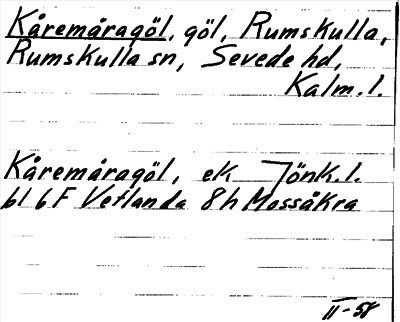 Kåremåragöl, göl, Rumskulla,
Rumskulla sn, Sevede hd,
Kalm. l.
Kåremåragöl, ek Jönk. l.
bl 6 F Vetlanda 8 h Mossåkra
II-58